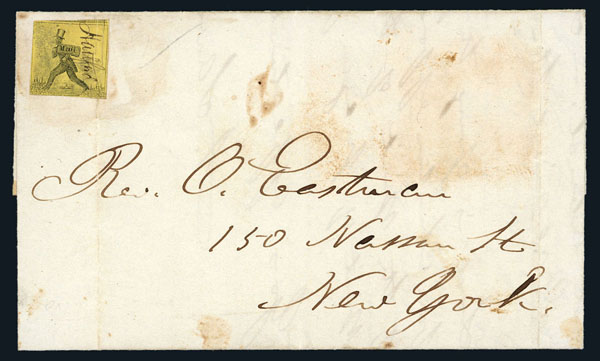 MAIL
Rev. O. Eastman
150 Nassau St
New York.